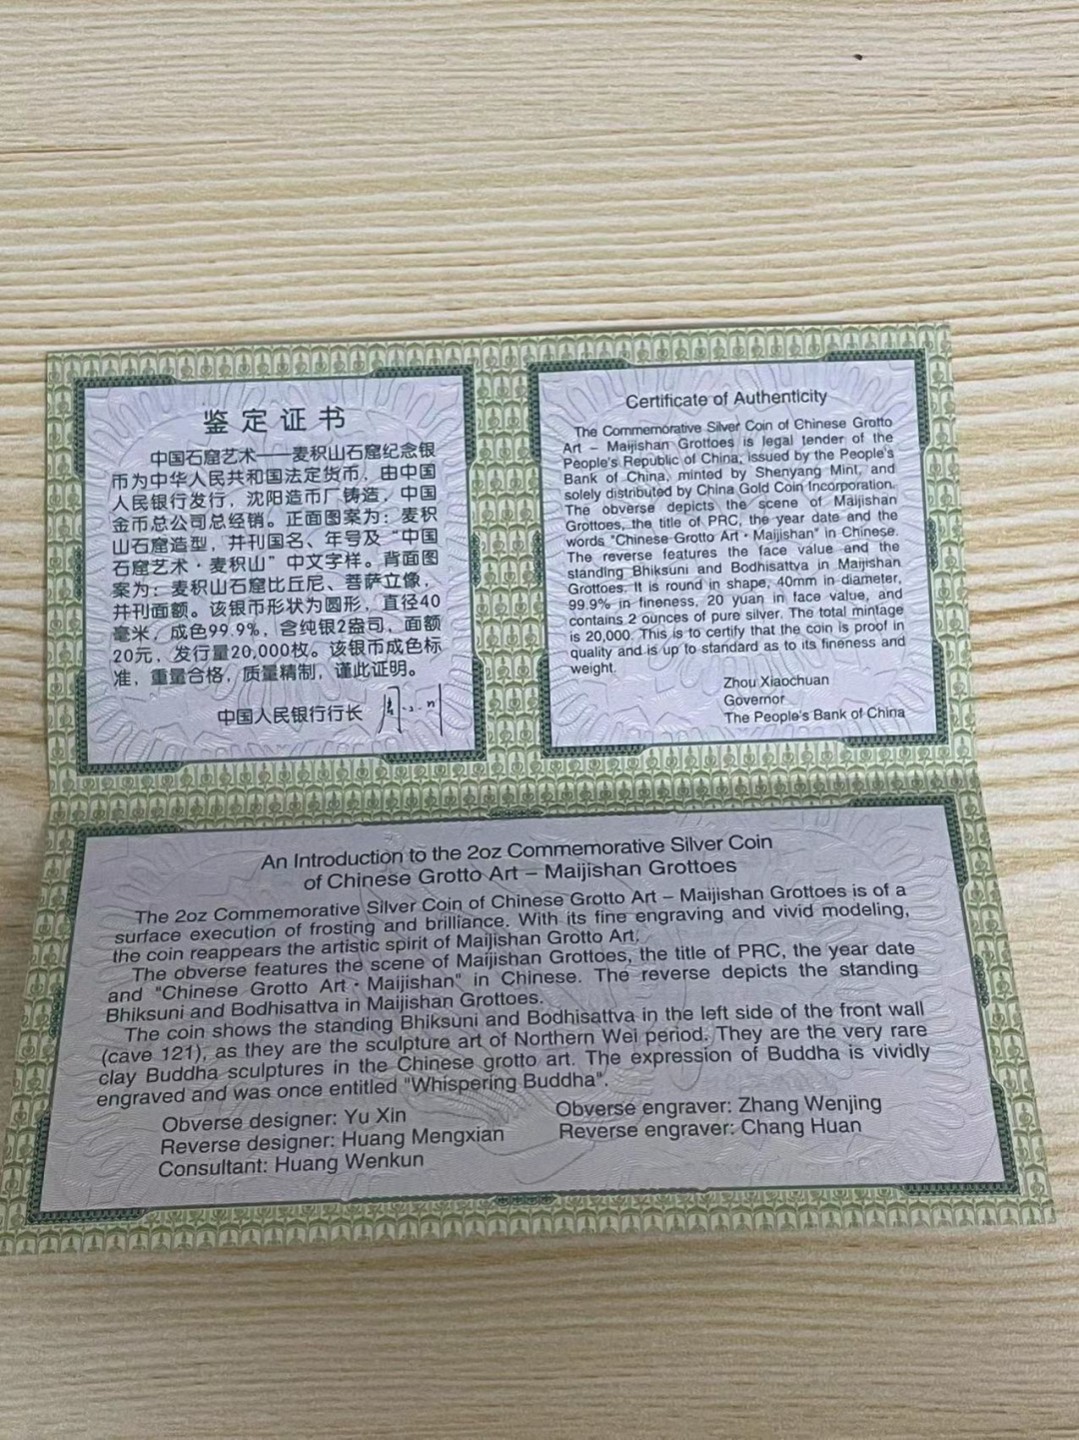 鉴定证书
中国石窟艺术——麦积山石窟纪念银
币为中华人民共和国法定货币，由中国
人民银行发行，沈阳造币厂铸造，中国
金币总公司总经销。正面图案为：麦积
山石窟造型，并刊国名、年号及“中国
石窟艺术·麦积山”中文字样。背面图
案为：麦积山石窟比丘尼、菩萨立像，
并刊面额。该银币形状为圆形，直径40
毫米，成色99.9%，含纯银2盎司，面额
20元，发行量20,000枚。该银币成色标
准，重量合格，质量精制，谨此证明。
中国人民银行行长
Certificate of Authenticity
The Commemorative Silver Coin of Chinese Grotto
Art – Maijishan Grottoes is legal tender of the
People's Republic of China, issued by the People's
Bank of China, minted by Shenyang Mint, and
solely distributed by China Gold Coin Incorporation.
The obverse depicts the scene of Maijishan
Grottoes, the title of PRC, the year date and the
words "Chinese Grotto Art · Maijishan" in Chinese.
The reverse features the face value and the
standing Bhiksuni and Bodhisattva in Maijishan
Grottoes. It is round in shape, 40mm in diameter,
99.9% in fineness, 20 yuan in face value, and
contains 2 ounces of pure silver. The total mintage
is 20,000. This is to certify that the coin is proof in
quality and is up to standard as to its fineness and
weight.
Zhou Xiaochuan
Governor
The People's Bank of China
An Introduction to the 2oz Commemorative Silver Coin
of Chinese Grotto Art – Maijishan Grottoes
The 2oz Commemorative Silver Coin of Chinese Grotto Art – Maijishan Grottoes is of a
surface execution of frosting and brilliance. With its fine engraving and vivid modeling,
the coin reappears the artistic spirit of Maijishan Grotto Art.
The obverse features the scene of Maijishan Grottoes, the title of PRC, the year date
and "Chinese Grotto Art · Maijishan" in Chinese. The reverse depicts the standing
Bhiksuni and Bodhisattva in Maijishan Grottoes.
The coin shows the standing Bhiksuni and Bodhisattva in the left side of the front wall
(cave 121), as they are the sculpture art of Northern Wei period. They are the very rare
clay Buddha sculptures in the Chinese grotto art. The expression of Buddha is vividly
engraved and was once entitled "Whispering Buddha".
Obverse designer: Yu Xin
Obverse engraver: Zhang Wenjing
Reverse designer: Huang Mengxian
Reverse engraver: Chang Huan
Consultant: Huang Wenkun